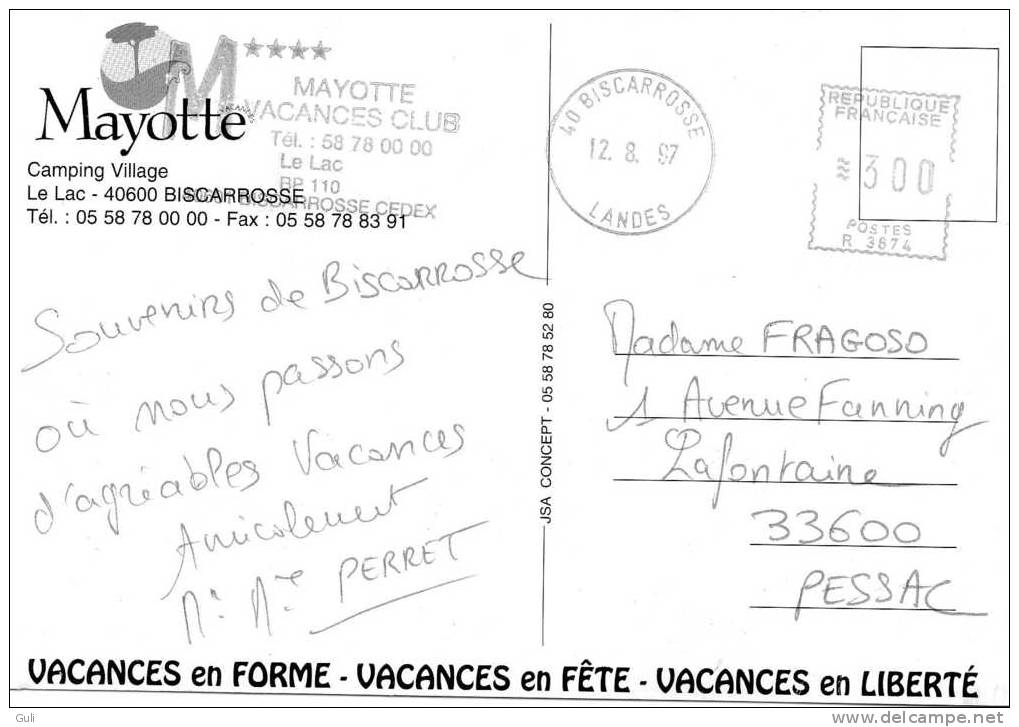 Mayotte
Camping Village
Le Lac - 40600 BISCARROSSE
Tél. : 05 58 78 00 00 - Fax : 05 58 78 83 91
★★★★
MAYOTTE
VACANCES CLUB
Tél. : 58 78 00 00
Le Lac
BP 110
BISCARROSSE CEDEX
40 BISCARROSSE
12. 8. 97
LANDES
REPUBLIQUE
FRANCAISE
300
POSTES
R 3874
Souvenirs de Biscarrosse
où nous passons
d'agréables Vacances
Amicalement
Mr Me PERRET
JSA CONCEPT - 05 58 78 52 80
Madame FRAGOSO
1 Avenue Fanning
Lafontaine
33600
PESSAC
VACANCES en FORME - VACANCES en FÊTE - VACANCES en LIBERTÉ
Guli
www.delcampe.net